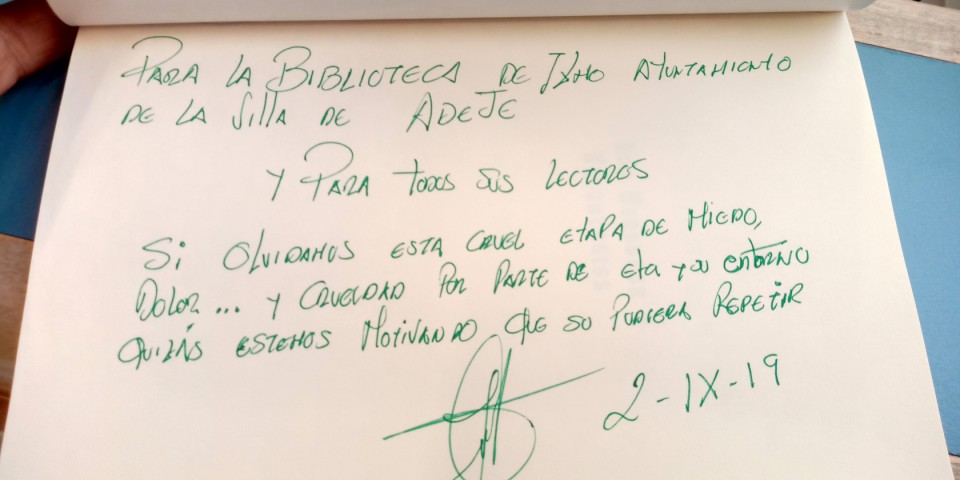 PARA LA BIBLIOTECA DE ILMO AYUNTAMIENTO
DE LA VILLA DE ADEJE
Y PARA TODOS SUS LECTORES
Si OLVIDAMOS ESTA CRUEL ETAPA DE MIEDO,
DOLOR... Y CRUELDAD POR PARTE DE Eta y su ENTORNO
QUIZÁS ESTEMOS MOTIVANDO QUE SE PUDIERA REPETIR
2-IX-19